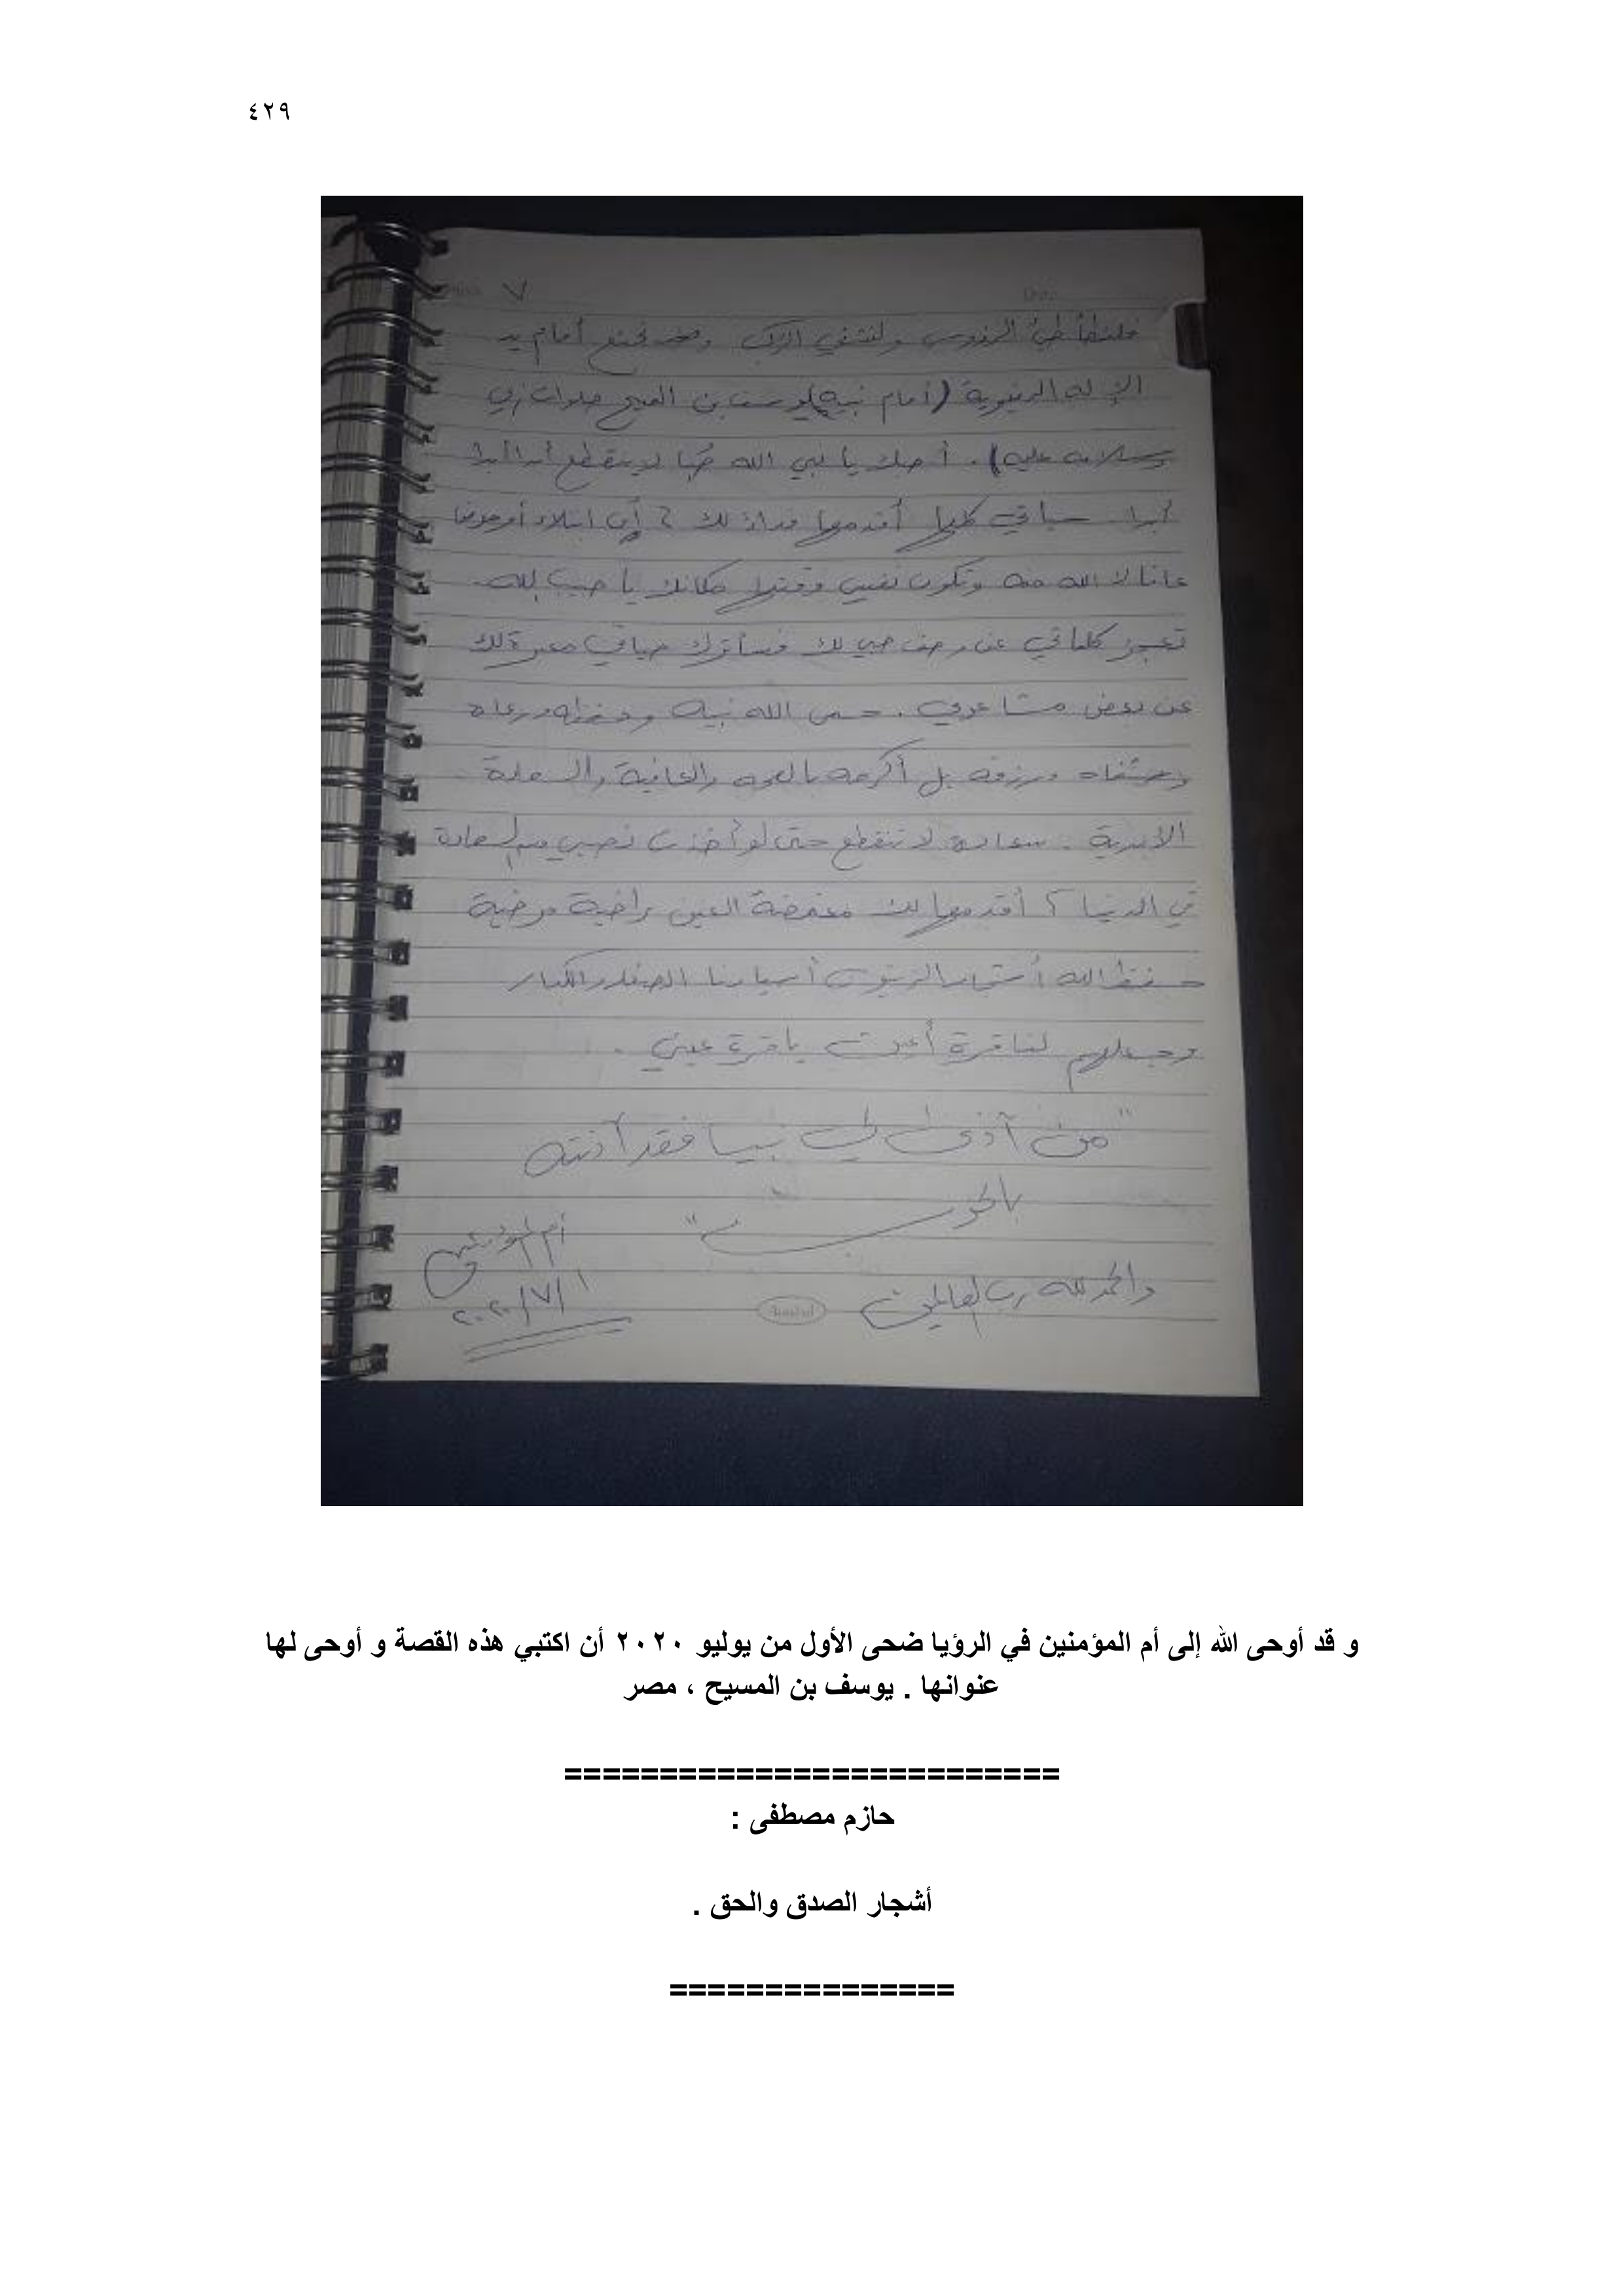 ٤٢٩
٧
الرؤوس ولنثني الركب ونحن نخضع أمام يد
الإله الدنيوية (أمام نبيه يوسف بن المسيح صلوات ربي
وسلامه عليه). أحبك يا نبي الله حُبا لا ينقطع أبدا أبدا
أبدا. حياتي كلها أقدمها فداءً لك ؟ أي ابتلاء أو
الله منه وتكون نفسي مكانك يا حبيب الله.
تعجز كلماتي عن وصف حبي لك فسأترك حياتي معبرة لك
عن بعض مشاعري. حمى الله نبيه وحفظه ورعاه
وشفاه ورزقه بل أكرمه بالصحة والعافية والسعادة
الأبدية. سعادة لا تنقطع حتى لو أخذت نصيبي من السعادة
في الدنيا ؟ أقدمها لك مغمضة العين راضية مرضية
حفظ الله أشجار الزيتون أسيادنا الصغار والكبار
وجعلهم لنا قرة أعين يا قرة عيني.
"من آذى لي نبيا فقد آذنته
بالحرب"
أم المؤمنين
والحمد لله رب العالمين
١/٧/٢٠٢٠
و قد أوحى الله إلى أم المؤمنين في الرؤيا ضحى الأول من يوليو ٢٠٢٠ أن اكتبي هذه القصة و أوحى لها
عنوانها . يوسف بن المسيح ، مصر
==========================
حازم مصطفى :
أشجار الصدق والحق .
===============